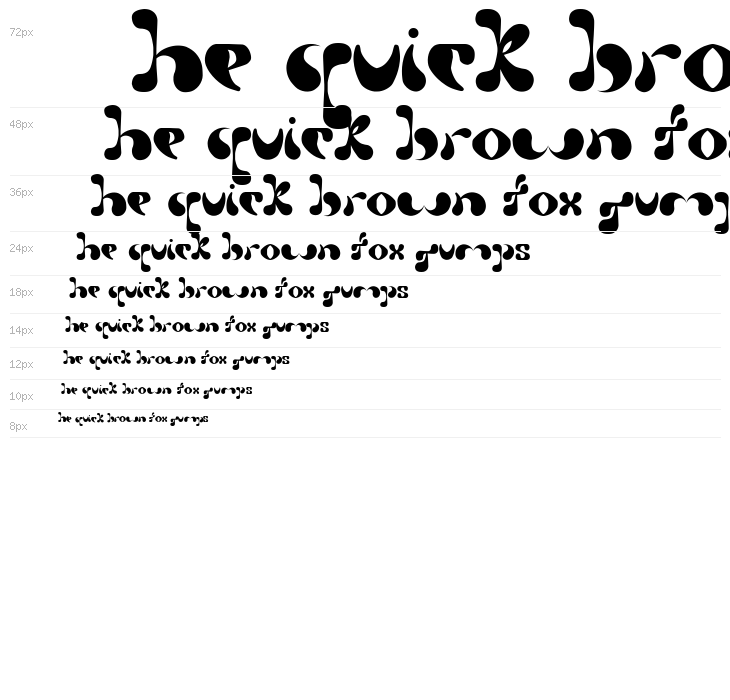 72px he quick bro
48px he quick brown fo
36px he quick brown fox gump
24px he quick brown fox gumps
18px he quick brown fox gumps
14px he quick brown fox gumps
12px he quick brown fox gumps
10px he quick brown fox gumps
8px he quick brown fox gumps